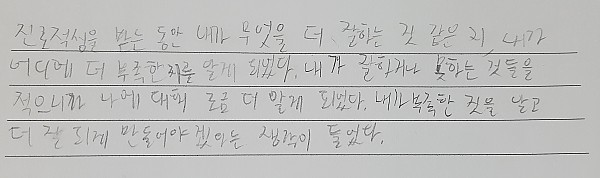 진로적심을 받는 동안 내가 무엇을 더 잘하는 것 같은 지 내가
어디에 더 부족한지를 알게 되었다. 내가 잘하거나 못하는 것들을
적으니까 나에 대해 조금 더 알게 되었다. 내가 부족한 것을 알고
더 잘 되게 만들어야겠다는 생각이 들었다.